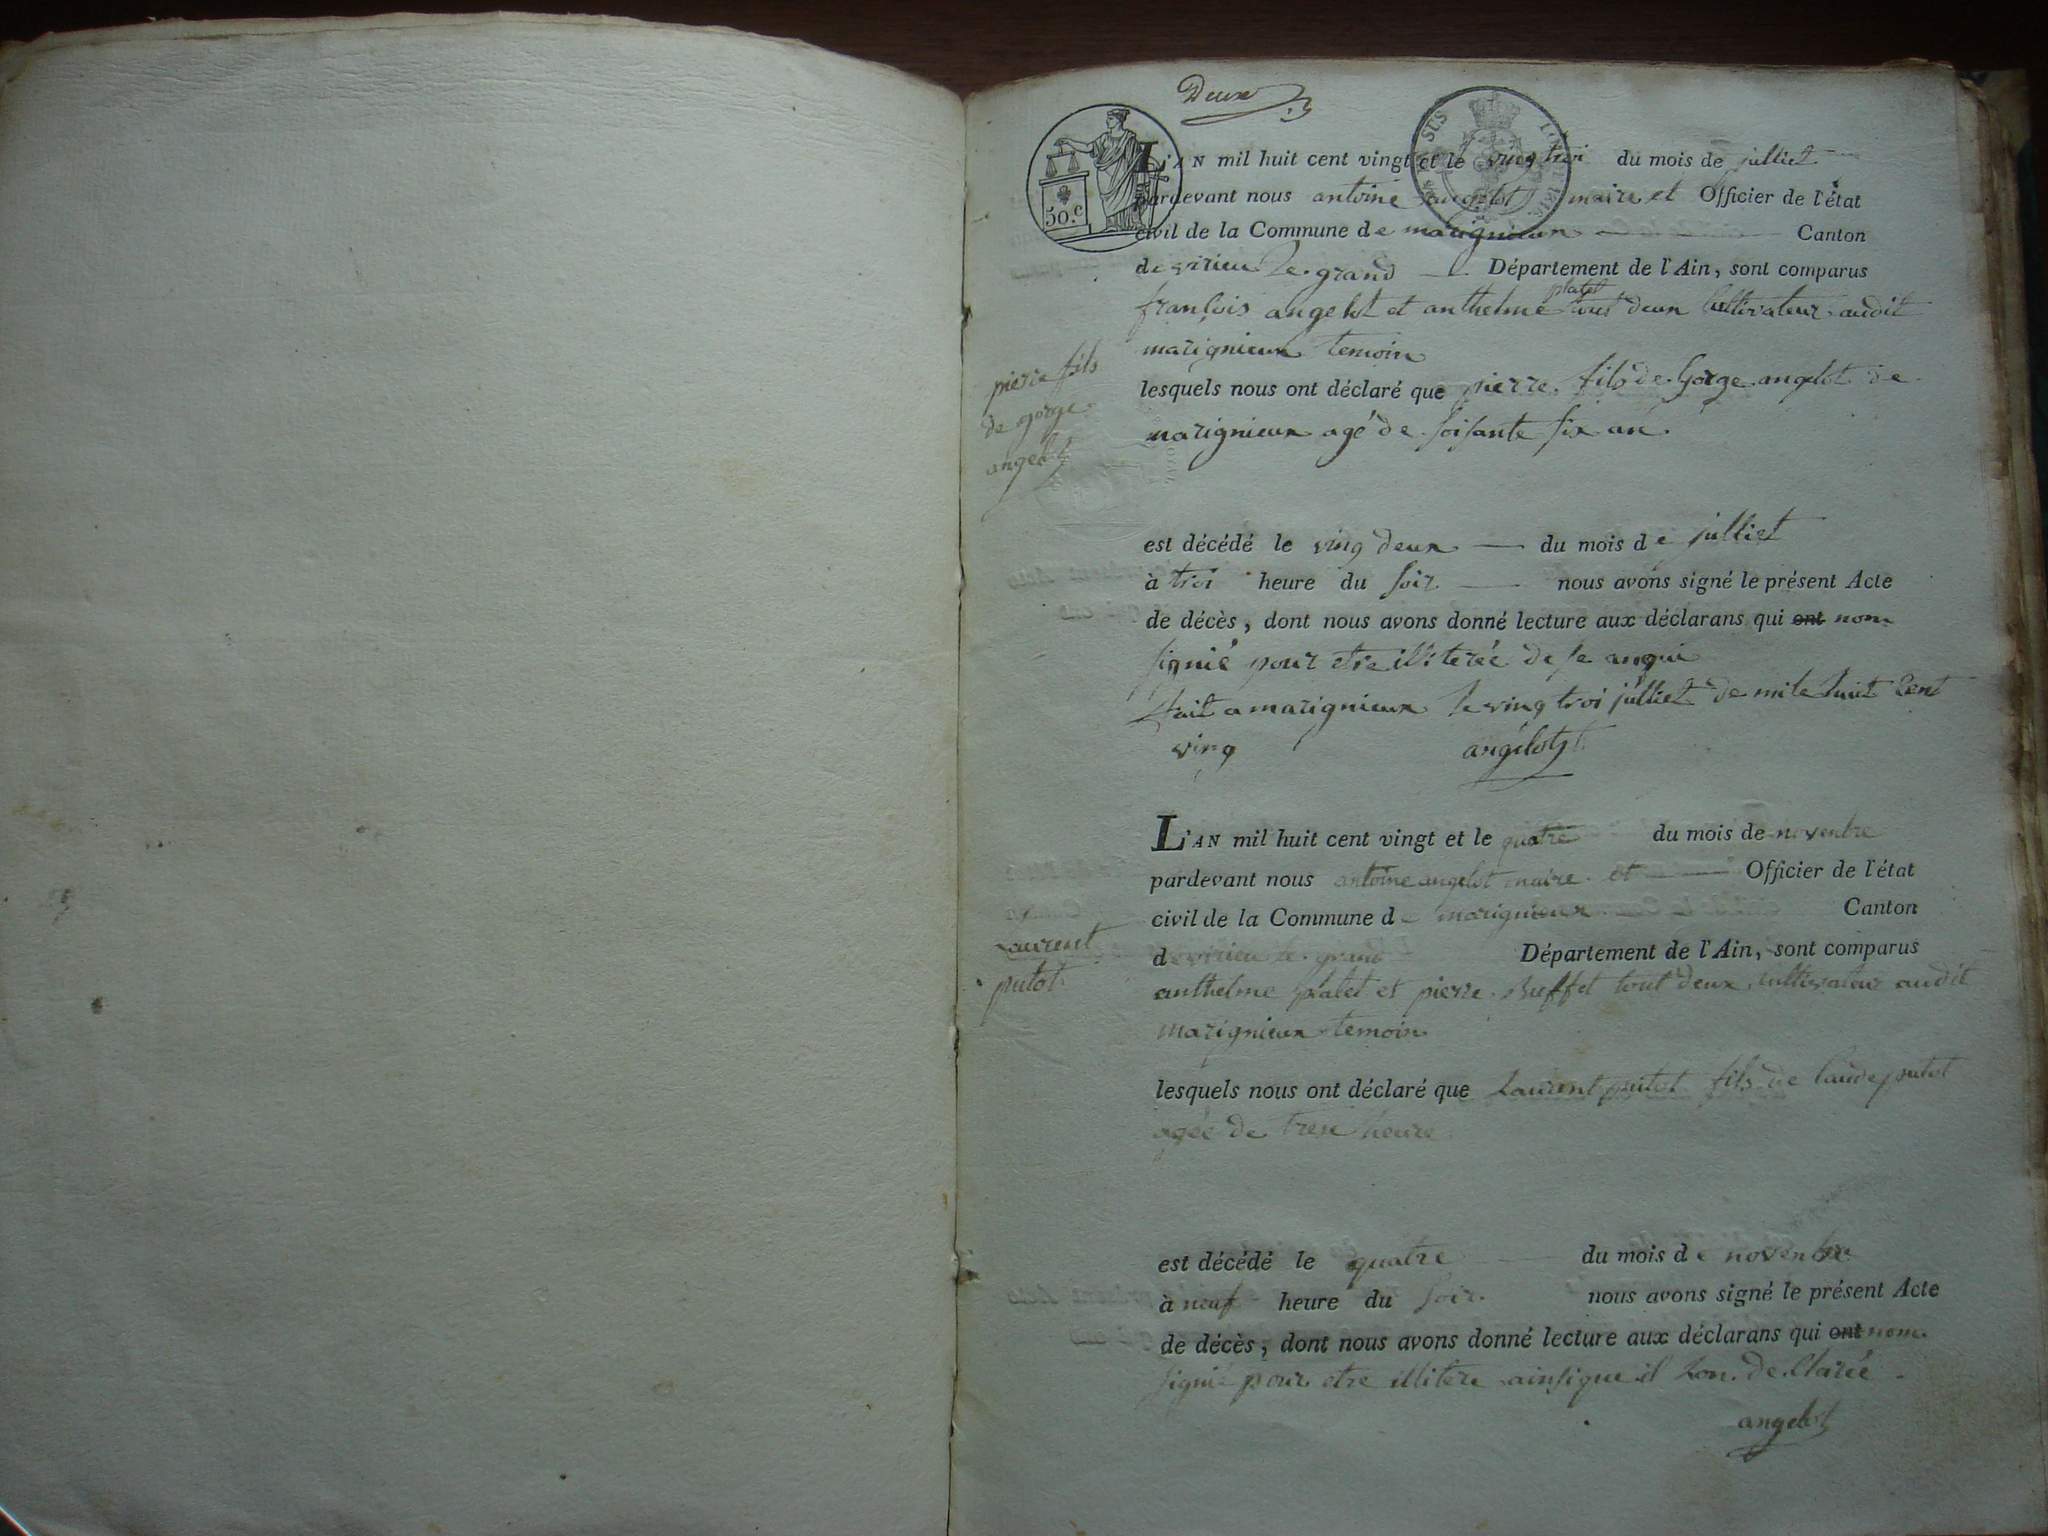 Deux
50.c
SUS
L'AN mil huit cent vingt et le ving troi du mois de julliet
pardevant nous antoine angelot maire et Officier de l'état
civil de la Commune de marignieux Canton
de virieu le grand Département de l'Ain, sont comparus
françois angelot et anthelme platet tout deux Cultivateur audit
marignieux temoin
pierre fils
de gorge
angelot
lesquels nous ont déclaré que pierre fils de Gorge angelot de
marignieux agé de soisante six an
est décédé le ving deux du mois de julliet
à troi heure du soir nous avons signé le présent Acte
de décès, dont nous avons donné lecture aux déclarans qui ont nom
signié pour etre illiterée de se
fait a marignieux le ving troi julliet de mile huit Cent
ving angelot
L'AN mil huit cent vingt et le quatre du mois de novenbre
pardevant nous antoine angelot maire et Officier de l'état
civil de la Commune de marignieux Canton
de virieu le grand Département de l'Ain, sont comparus
Laurent
putot
anthelme platet et pierre Buffet tout deux cultivateur audit
marignieux temoin
lesquels nous ont déclaré que Laurent putot fils de Claude putot
agée de trese heure
est décédé le quatre du mois de novenbre
à neuf heure du soir nous avons signé le présent Acte
de décès, dont nous avons donné lecture aux déclarans qui ont nom
signié pour etre illitere ainsi que il Lon de Clarée
angelot